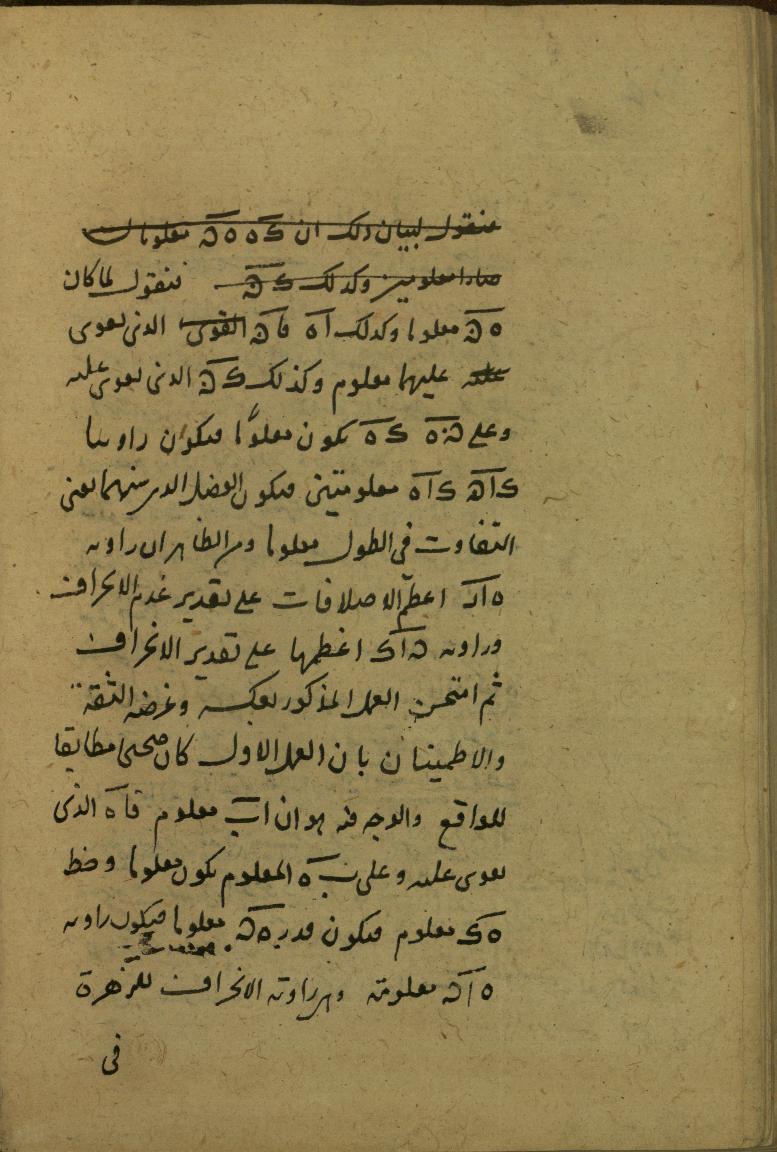 فنقول لبيان ذلك ان كه ه ح معلومان
صارا معلومين وكذلك كح فنقول لما كان
ه ح معلوما وكذلك اه فاح القوى الذي يقوى
عليه عليهما معلوم وكذلك كح الذي يقوى عليه
وعلى كه يكون معلوما فيكون زاويتا
كاح كاه معلومتين فيكون الفضل الذي بينهما يعني
التفاوت في الطول معلوما ومن الظاهر ان زاوية
اعظم الاختلافات على تقدير عدم الانحراف
وزاوية ح اك اعظمها على تقدير الانحراف
ثم امتحن العمل المذكور بعكسه وغرضه الثقة
والاطمينان بان العمل الاول كان صحيحا مطابقا
للواقع والوجه فيه هو ان اب معلوم فاه الذي
يقوى عليه وعلى به المعلوم يكون معلوما وخط
ه ك معلوم فيكون قدر معلوما فيكون زاوية
معلومة وهي زاوية الانحراف للزهرة
في